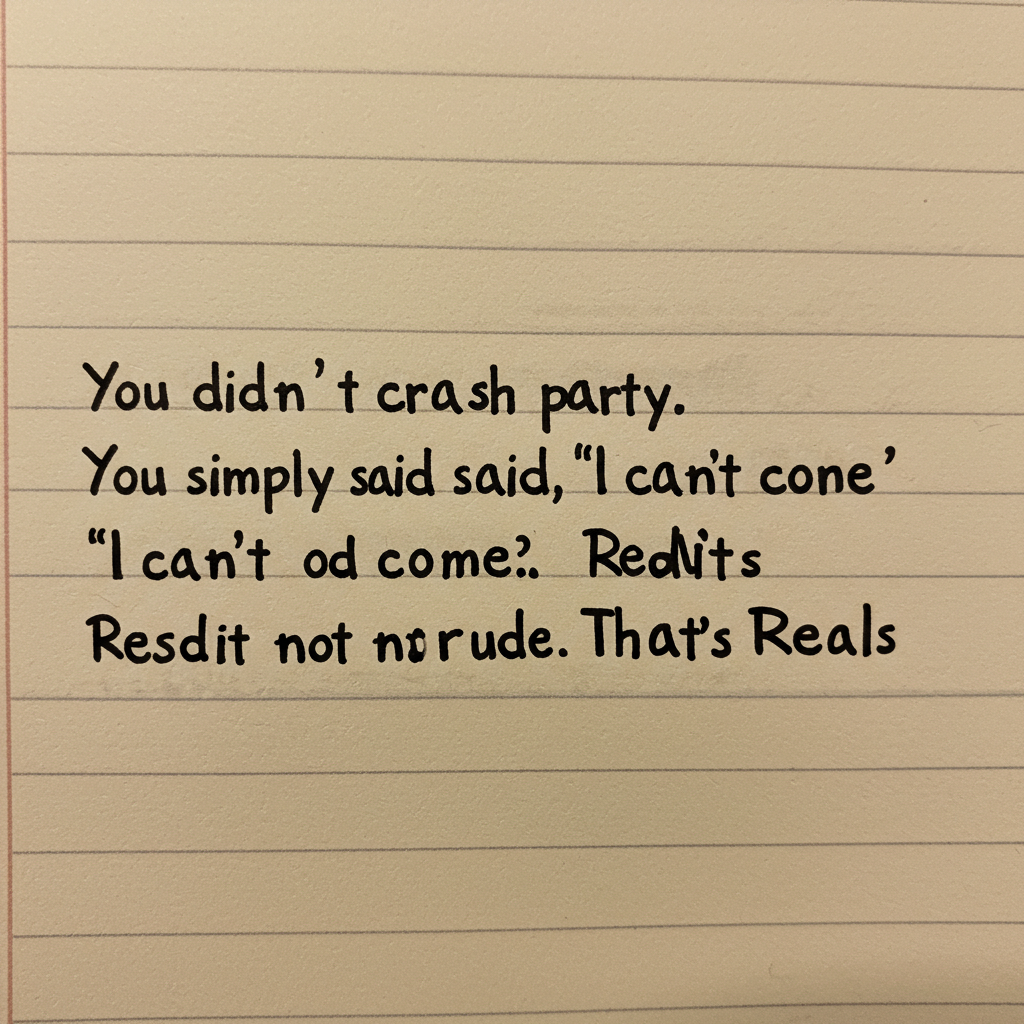 You didn't crash party.
You simply said said, "I can't cone'
"I can't od come?.
Resdit not rude. That's Reals